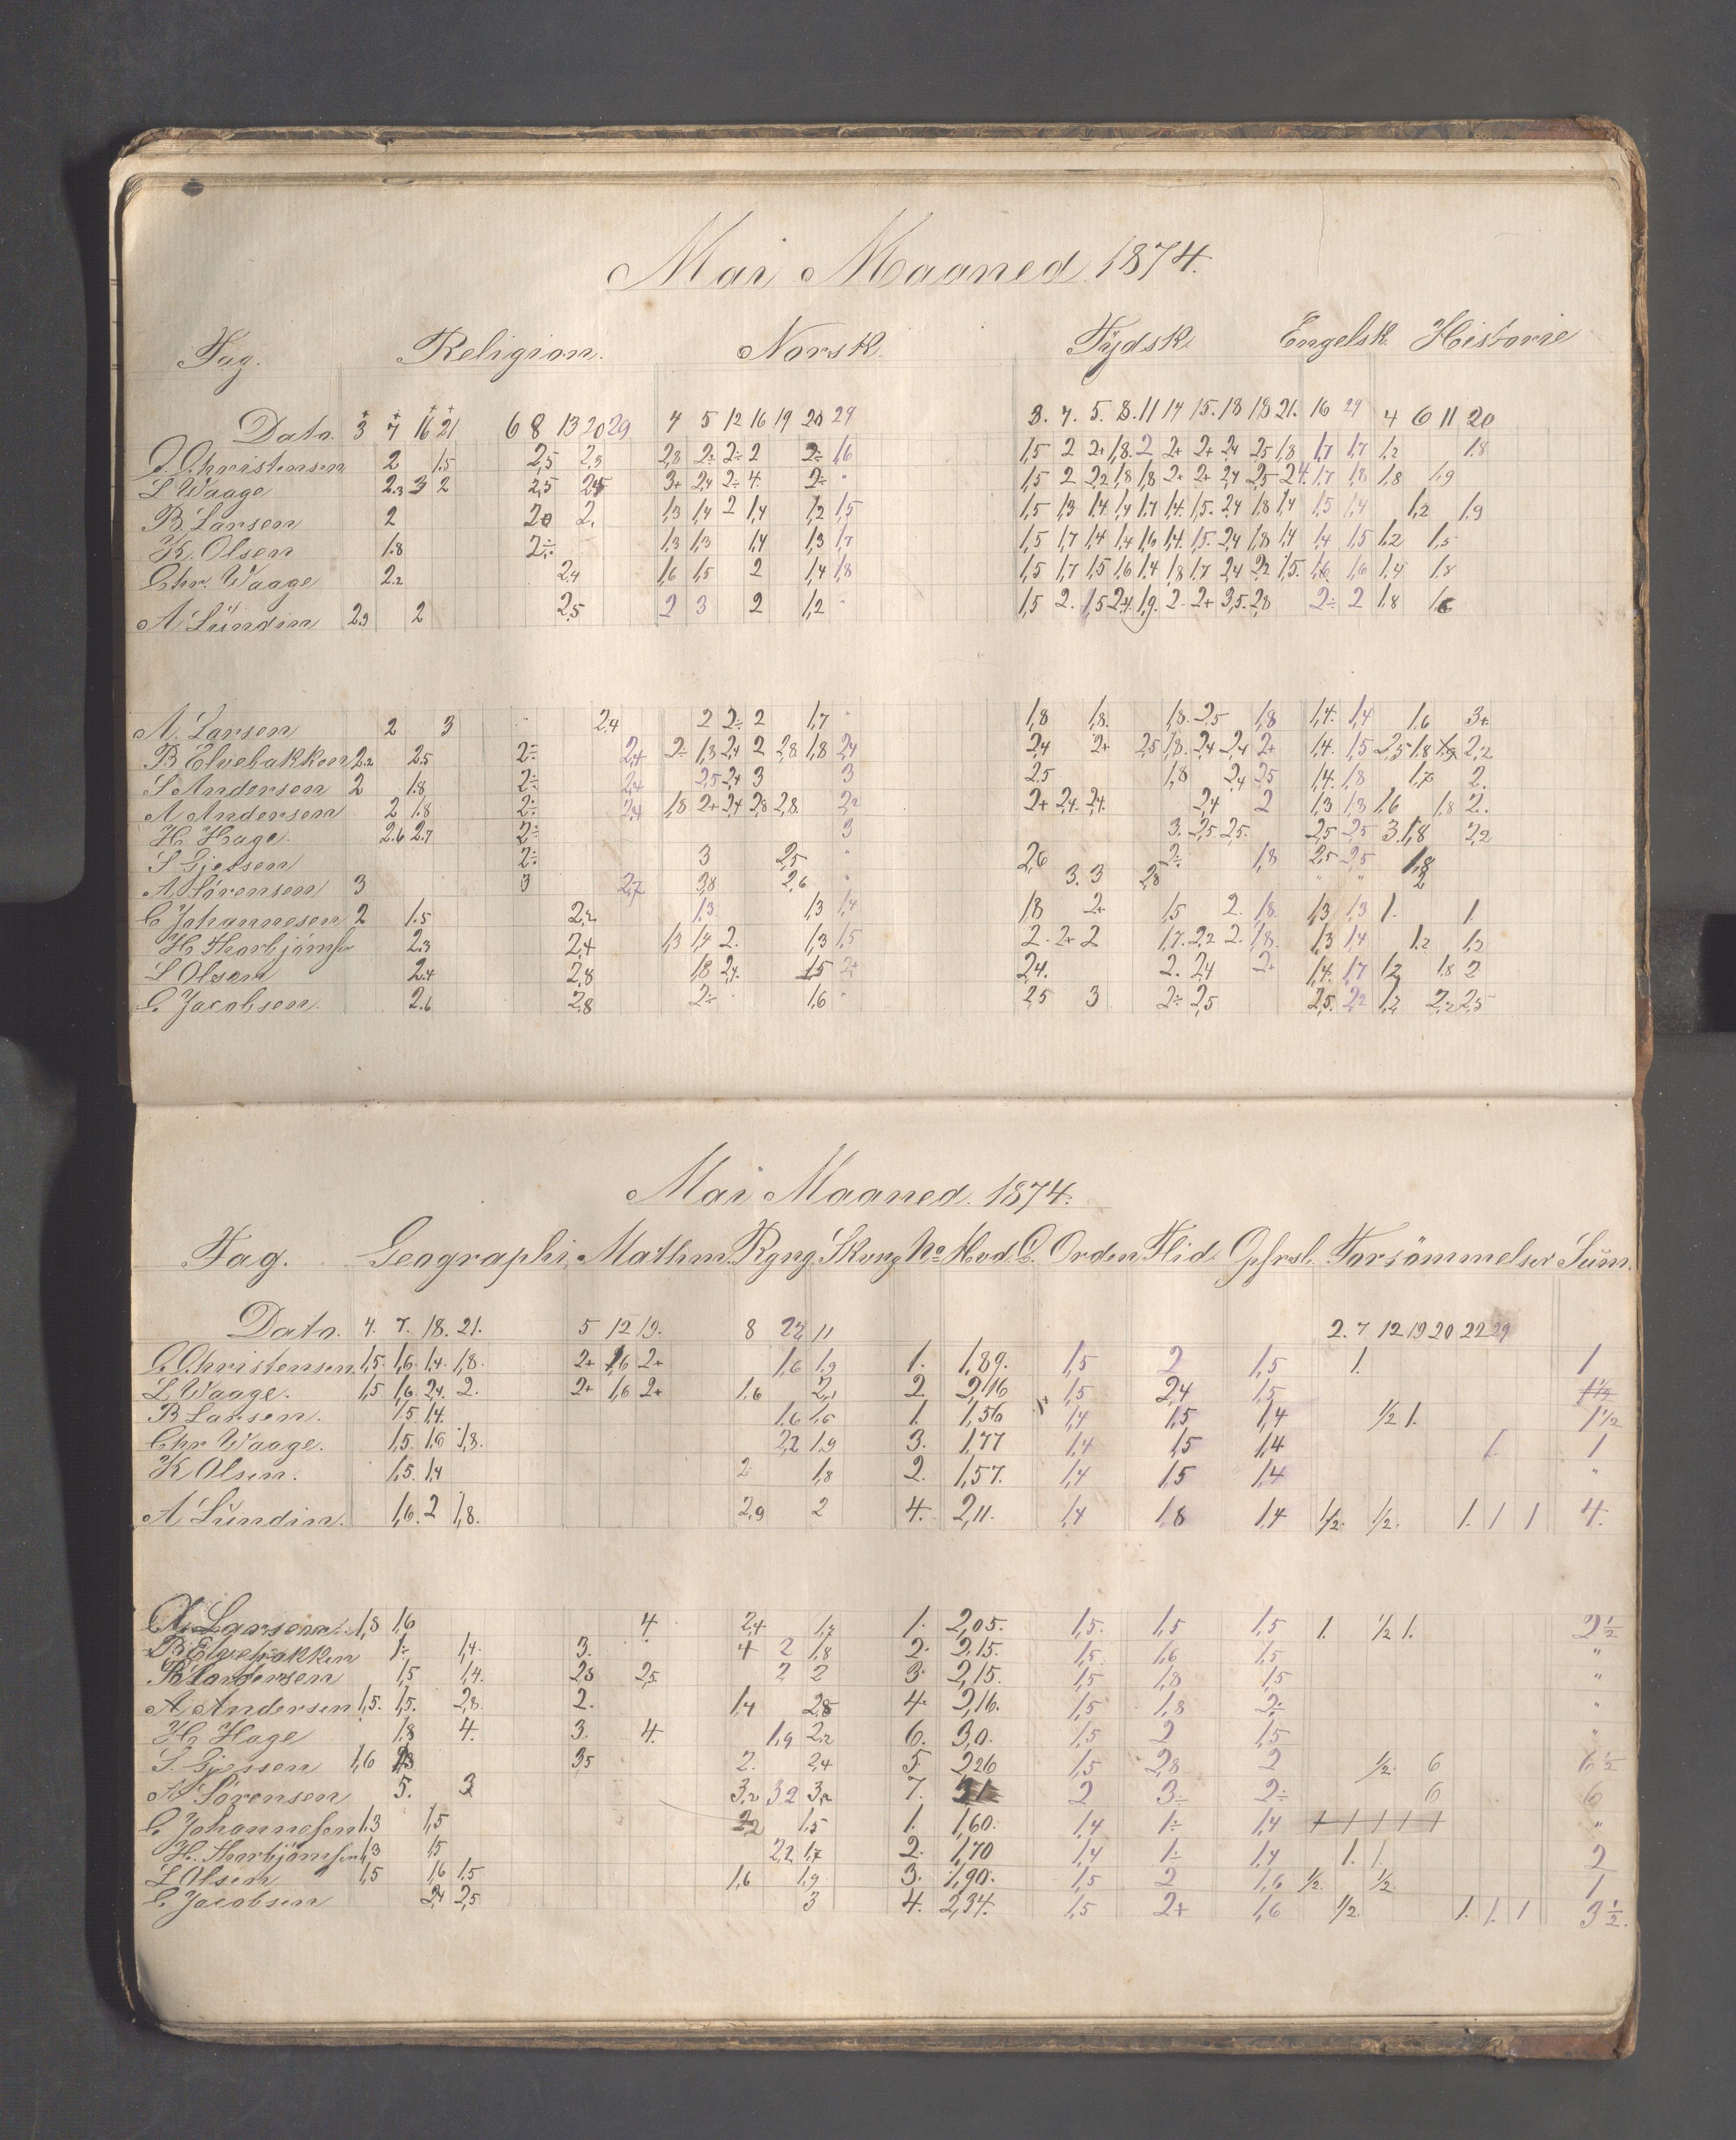 Mai Maaned 1874.
Fag. Religion. Norsk. Tydsk Engelsk. Historie
Dato. 3 7 16 21 6 8 13 20 29 4 5 12 16 19 20 29 3. 4. 5. 8. 11 14 15. 18 18 21. 16 29 4 6 11 20
C. Christensen 2 1.5 2,5 2,3 2,8 2÷ 2÷ 2 2÷ 1,6 1,5 2 2+ 1,8. 2 2+ 2+ 2,4 2,5 1,8 1,7 1,7 1,2 1.8
L Waage 2.3 3 2 2,5 2,5 3+ 2,4 2÷ 4. 2÷ " 1,5 2 2,2 1,8 1,8 2+ 2+ 2,4 2,5 2,4. 1,7 1,8 1,8 1,9
B. Larsen 2 2 2. 1,3 1,4 2 1,4 1,2 1,5 1,5 1,3 1,4. 1,4 1,7 1,4. 1,5. 2,4 1,8 1,4 1,5 1,4 1,2 1,9
K. Olsen 1.8 2÷. 1,3 1,3 1,4 1,3 1,7 1,5 1,7 1,4 1,4 1,6 1,4. 1,5. 2,4 1,8 1,4 1,4 1,5 1,2 1,5
Chr. Waage 2.2 2,4 1,6 1,5 2 1,4 1,8 1,5 1,7 1,5 1,6 1,4 1,8 1,7 2,4 2,2 1,5. 1,6 1,6 1,4 1,8
A Lündin 2.3 2 2,5 2 3 2 1,2 " 1,5 2. 1,5 2,4. 1,9. 2. 2+ 3,5. 2,8 2÷ 2 1,8 1,6
A Larsen 2 3 " 2,4 2 2÷ 2 1,7 " 1,8 1,8. 1,8. 2,5 1,8 1,4. 1,4 1,6 3+
B Elvebakken 2.2 2.5 2÷ 2,4 2÷ 1,8 2,4 2 2,8 1,8 2,4 2,4 2+ 2,5 1,8. 2,4 2,4 2+ 1,4. 1,5 2,5 1,8 1,9 2,2
S Andersen 2 1.8 2÷ 2,4 2,5 2,4 3 3 2,5 1,8 2,4 2,5 1,4. 1,8 1,7 2.
A Andersen 2 1.8 2÷ 2,4 1,8 2+ 2,4 2,8 2,8 2,2 2+ 2,4. 2,4. 2,4 2 1,3 1,3 1,6 1,8 2.
H. Hage. 2.6 2.7 2÷ 3 3. 2,5. 2,5. 2,5 2,5 3. 1,8 2,2
S Gjessen 2÷ 3 2,5 " 2,6 2÷ 1,8 2,5 2,5 1,8
A. Sörensen 3 3 2,7 3,8 2,6 " 3. 3 2,8 " " 2
C Johannesen 2 1.5 2,2 1,3 1,3 1,4 1,8 2+ 1,5 2. 1,8. 1,3 1,3 1. 1.
H. Thorbjörnsen 2.3 2,4 1,3 1,4 2. 1,3 1,5 2. 2+ 2 1,7. 2,2 2. 1,8. 1,3 1,4 1,2 1,2
L Olsen 2.4 2,8 1,8 2,4. 1,5 2+ 2,4. 2. 2,4 2+ 1,4. 1,7 1,2 1,8 2
C Jacobsen. 2.6 2,8 2÷ 1,6 " 2,5 3 2÷ 2,5 2,5. 2,2 1,2 2,2 2,5
Mai Maaned. 1874.
Fag. Geographi. Mathm. Rgng. Skvng No Hvd. C. Orden Flid. Opfrsl. Forsömmelser Süm.
Dato. 4. 7. 18. 21. 5 12 19. 8 22 11 2. 7 12 19 20 22 29
C. Christensen. 1,5. 1,6. 1,4. 1,8. 2+ 1,6 2+ 1,6 1,9 1. 1,89. 1,5 2 1,5 1. 1
L Waage. 1,5 1,6 2,4. 2. 2+ 1,6 2+ 1,6 2,1 2. 2,16 1,5 2,4 1,5 1½
B Larsen. 1,5 1,4. 1,6 1,6 1. 1,56 1,4 1,5 1,4 ½ 1. 1½
Chr Waage. 1,5. 1,6 1,8. 2,2 1,9 3. 1,77 1,4 1,5 1,4 1. 1
K Olsen. 1,5. 1,4 2 1,8 2. 1,57. 1,4 1,5 1,4 "
A Lündin. 1,6. 2 1,8. 2,9 2 4. 2,11. 1,4 1,8 1,4 ½. ½. 1. 1 1 4.
A Larsen. 1,8 1,6 4 2,4 1,7 1. 2,05. 1,5. 1,5 1,5 1. ½ 1. 2½
B Elvebakken 1÷ 1,4. 3. 4 2 1,8 2. 2,15. 1,5. 1,6 1,5 "
S Andersen 1,5 1,4. 2,8 2,5. 2 2 3. 2,15. 1,5 1,8 1,5 "
A Andersen 1,5. 1,5. 2,8. 2. 1,4 2,8 4. 2,16. 1,5 1,8 2÷ "
H Hage 1,8 4. 3. 4. 1,9 2,2 6. 3,0. 1,5 2 1,5 "
S. Gjessen 1,6 3,5 2. 2,4 5. 2,26 1,5 2,8 2 ½. 6 6½
A Sörensen 5. 3 3,2 3,2 3,2 7. 2 3÷ 2÷ 6 6
C Johannesen 1,3 1,5 2,2 1,5 1. 1,60. 1,4 1÷ 1,4 1 1 1 1 1 "
H. Thorbjörnsen 1,3 1,5 2,2 1,7 2. 1,70 1,4 1÷ 1,4 1. 1. 2
L Olsen 1,5 1,6 1,5 1,6 1,9. 3. 1,90. 1,5 2 1,6 ½. ½ 1
C Jacobsen 2,4 2,5 3 4. 2,34. 1,5 2+ 1,6 ½. 1. 1. 1 3½.